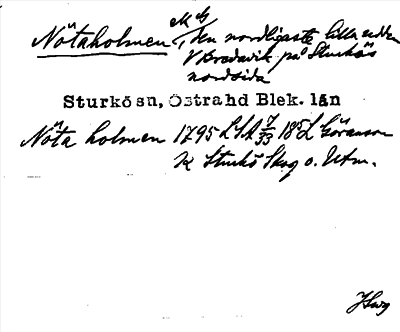 Nötaholmen, den nordligaste lilla udden
V Bredavik på Sturkös
nordsida
Sturkö sn, Östrahd Blek. län
Nöta holmen 1795 LSA 7/33 1852 Göranson
K Sturkö Skog o. Utm.